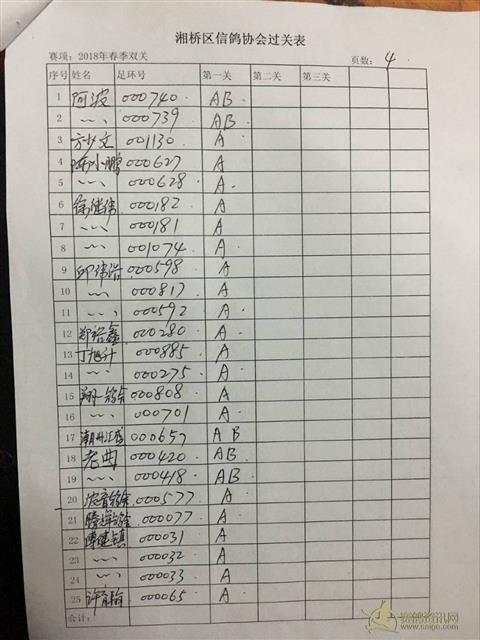 湘桥区信鸽协会过关表
赛项：2018年春季双关 页数： 4
序号 姓名 足环号 第一关 第二关 第三关
1 阿波 000740 AB
2 〃 000739 AB
3 方少文 001130 A
4 陈小鹏 000627 A
5 〃 000628 A
6 徐继伟 000182 A
7 〃 000181 A
8 〃 001074 A
9 邱伟浩 000598 A
10 〃 000817 A
11 〃 000592 A
12 郑裕鑫 000280 A
13 丁旭升 000885 A
14 〃 000275 A
15 翔一鸽舍 000808 A
16 〃 000701 A
17 潮州汇盛 000657 AB
18 老曲 000420 AB
19 〃 000418 AB
20 000577 A
21 000077 A
22 000031 A
23 〃 000032 A
24 〃 000033 A
25 000065 A
合计：
赛鸽资讯网
www.saige.com